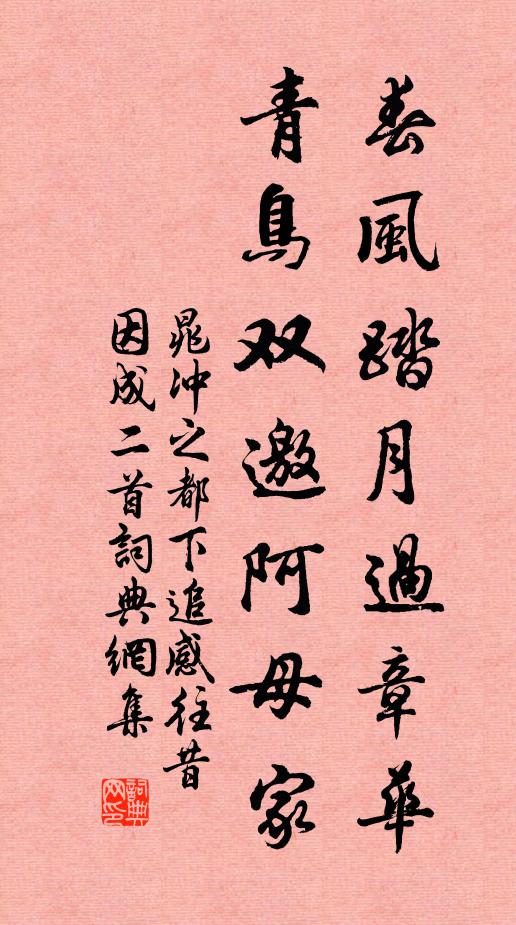 春風踏月過章華
青鳥双邀阿母家
晁冲之都下追感往昔
因成二首詞典網集
詞典網印